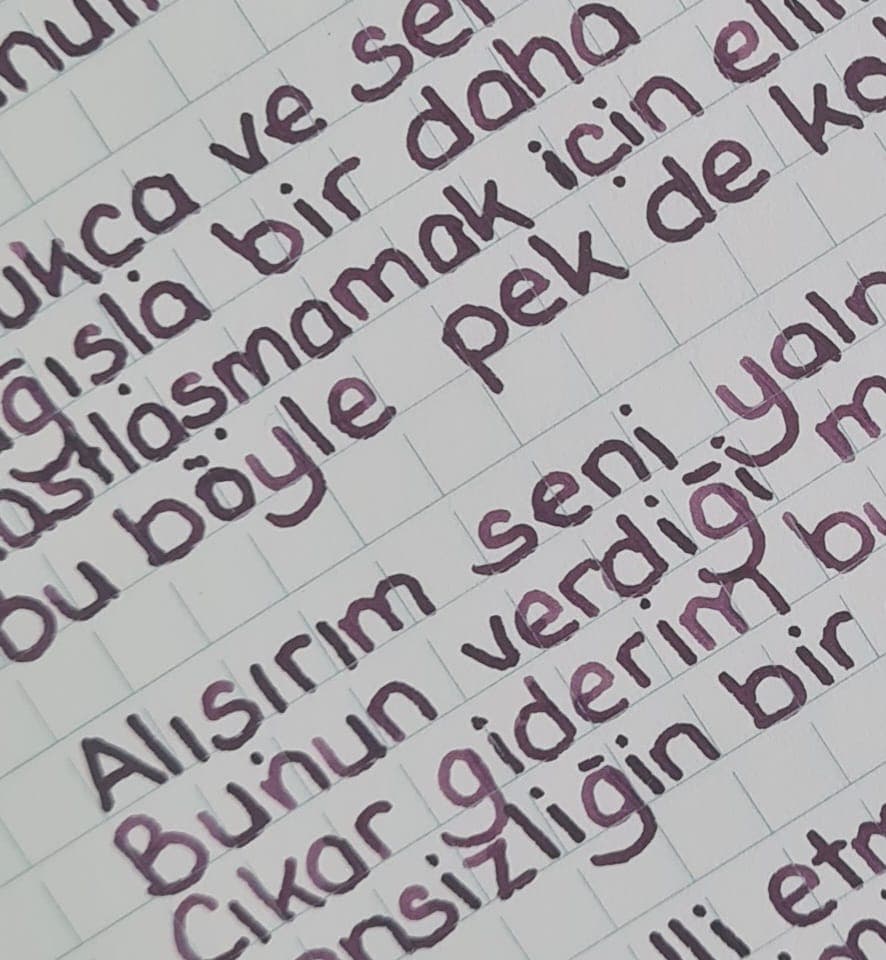 ukça ve
ğışla bir daha
astlaşmamak için eli
bu böyle pek de ko
Alışırım seni yaln
Bunun verdiği m
Çıkar giderim bu
ensizliğin bir
lli etm